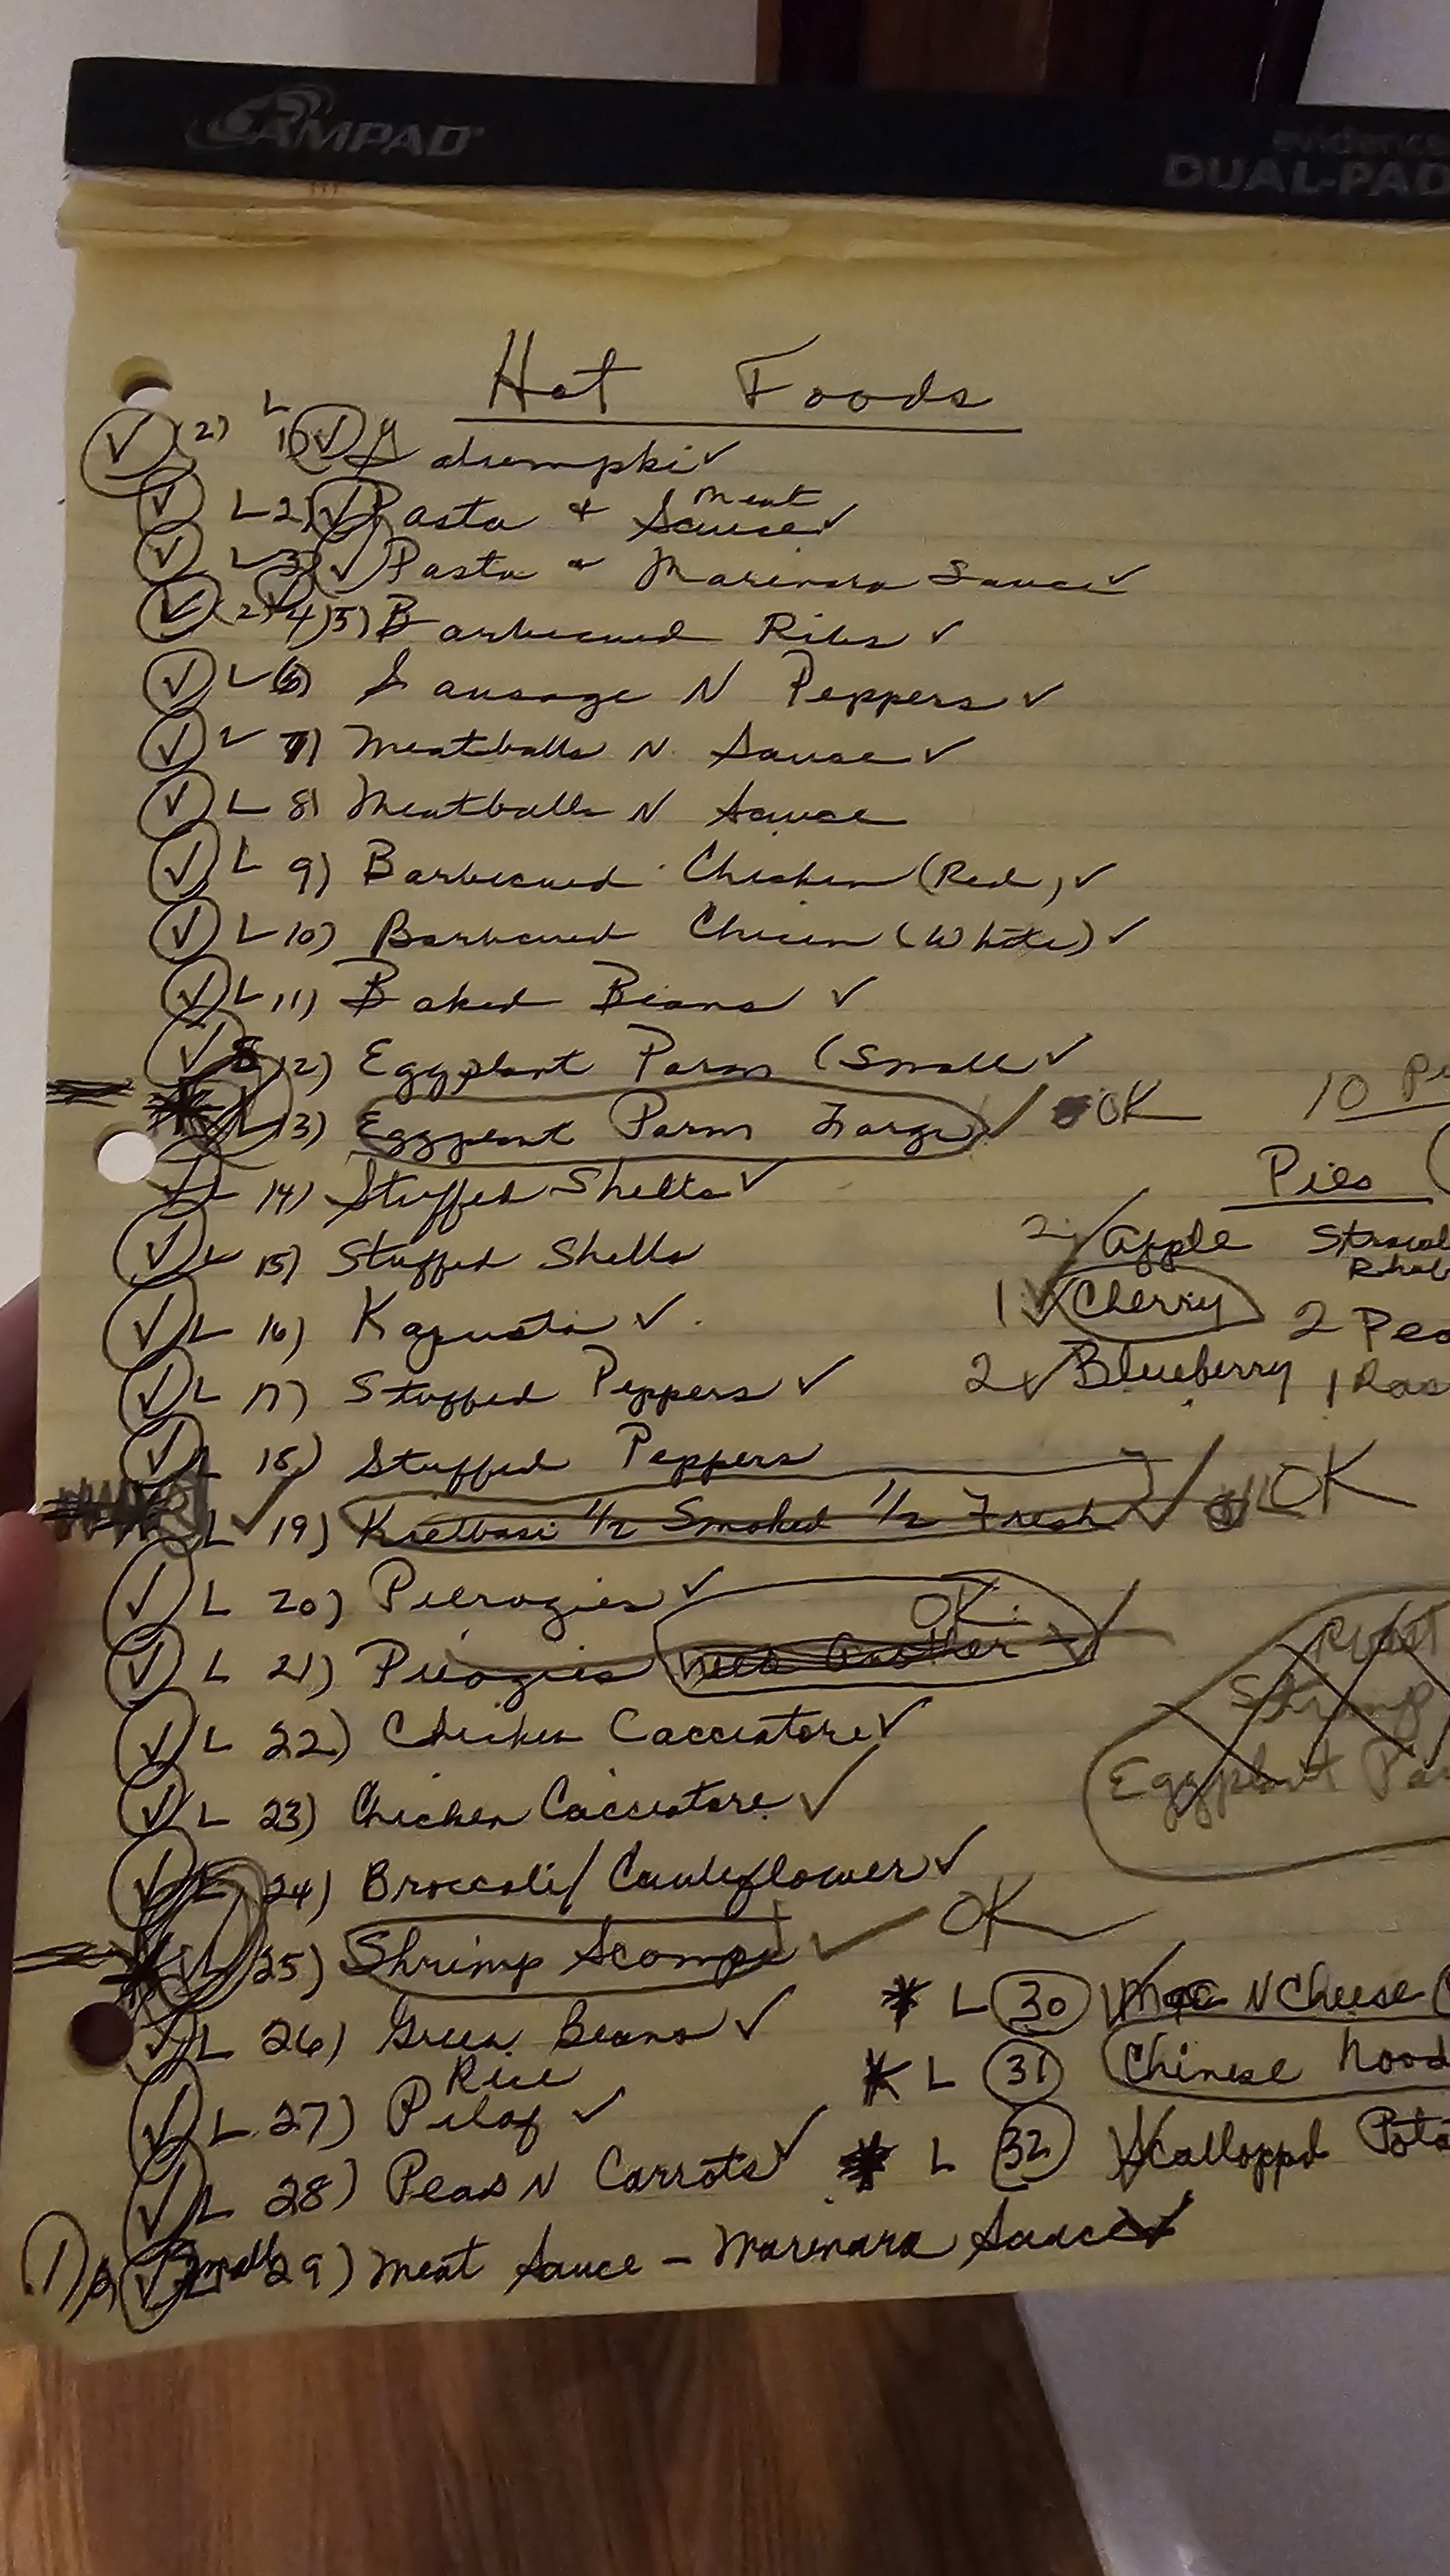 AMPAD
evidence
DUAL-PAD
Hot Foods
(2) L 1) Galumpki ✓
L 2) Pasta & Meat Sauce ✓
L 3) Pasta & Marinara Sauce ✓
(2) 4) 5) Barbecued Ribs ✓
L 6) Sausage N Peppers ✓
L 7) Meatballs N Sauce ✓
L 8) Meatballs N Sauce
L 9) Barbecued Chicken (Red) ✓
L 10) Barbecued Chicen (White) ✓
L 11) Baked Beans ✓
12) Eggplant Parm (Small ✓
L 13) Eggplant Parm Large ✓ OK
10
Pies
L 14) Stuffed Shells ✓
2 ✓ Apple
L 15) Stuffed Shells
1 ✓ Cherry 2
L 16) Kapusta ✓
2 ✓ Blueberry 1
L 17) Stuffed Peppers ✓
L 18) Stuffed Peppers
L ✓ 19) Kielbasi 1/2 Smoked 1/2 Fresh ✓ OK
L 20) Pierogies ✓
OK
L 21) Pierogies need another ✓
Eggplant
L 22) Chicken Cacciatore ✓
L 23) Chicken Cacciatore ✓
L 24) Broccoli/Cauliflower ✓
L 25) Shrimp Scampi ✓ OK
* L 30 Mac N Cheese
L 26) Green Beans ✓
* L 31 Chinese
L 27) Rice Pilaf ✓
* L 32 Scallopd
L 28) Peas N Carrots ✓
Small 29) Meat Sauce - Marinara Sauce ✓